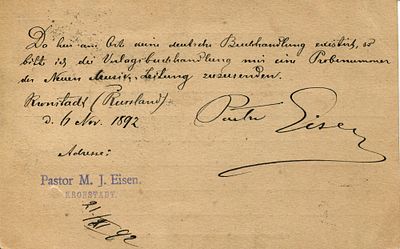 Da hier am Ort keine deutsche Buchhandlung existirt, so
bitt ich die Verlagsbuchhandlung mir eine Probenummer
der Neuen Musik-Zeitung zuzusenden.
Kronstadt (Russland)
d. 6 Nov. 1892
Pastor Eisen
Adresse:
Pastor M. J. Eisen.
KRONSTADT.
92